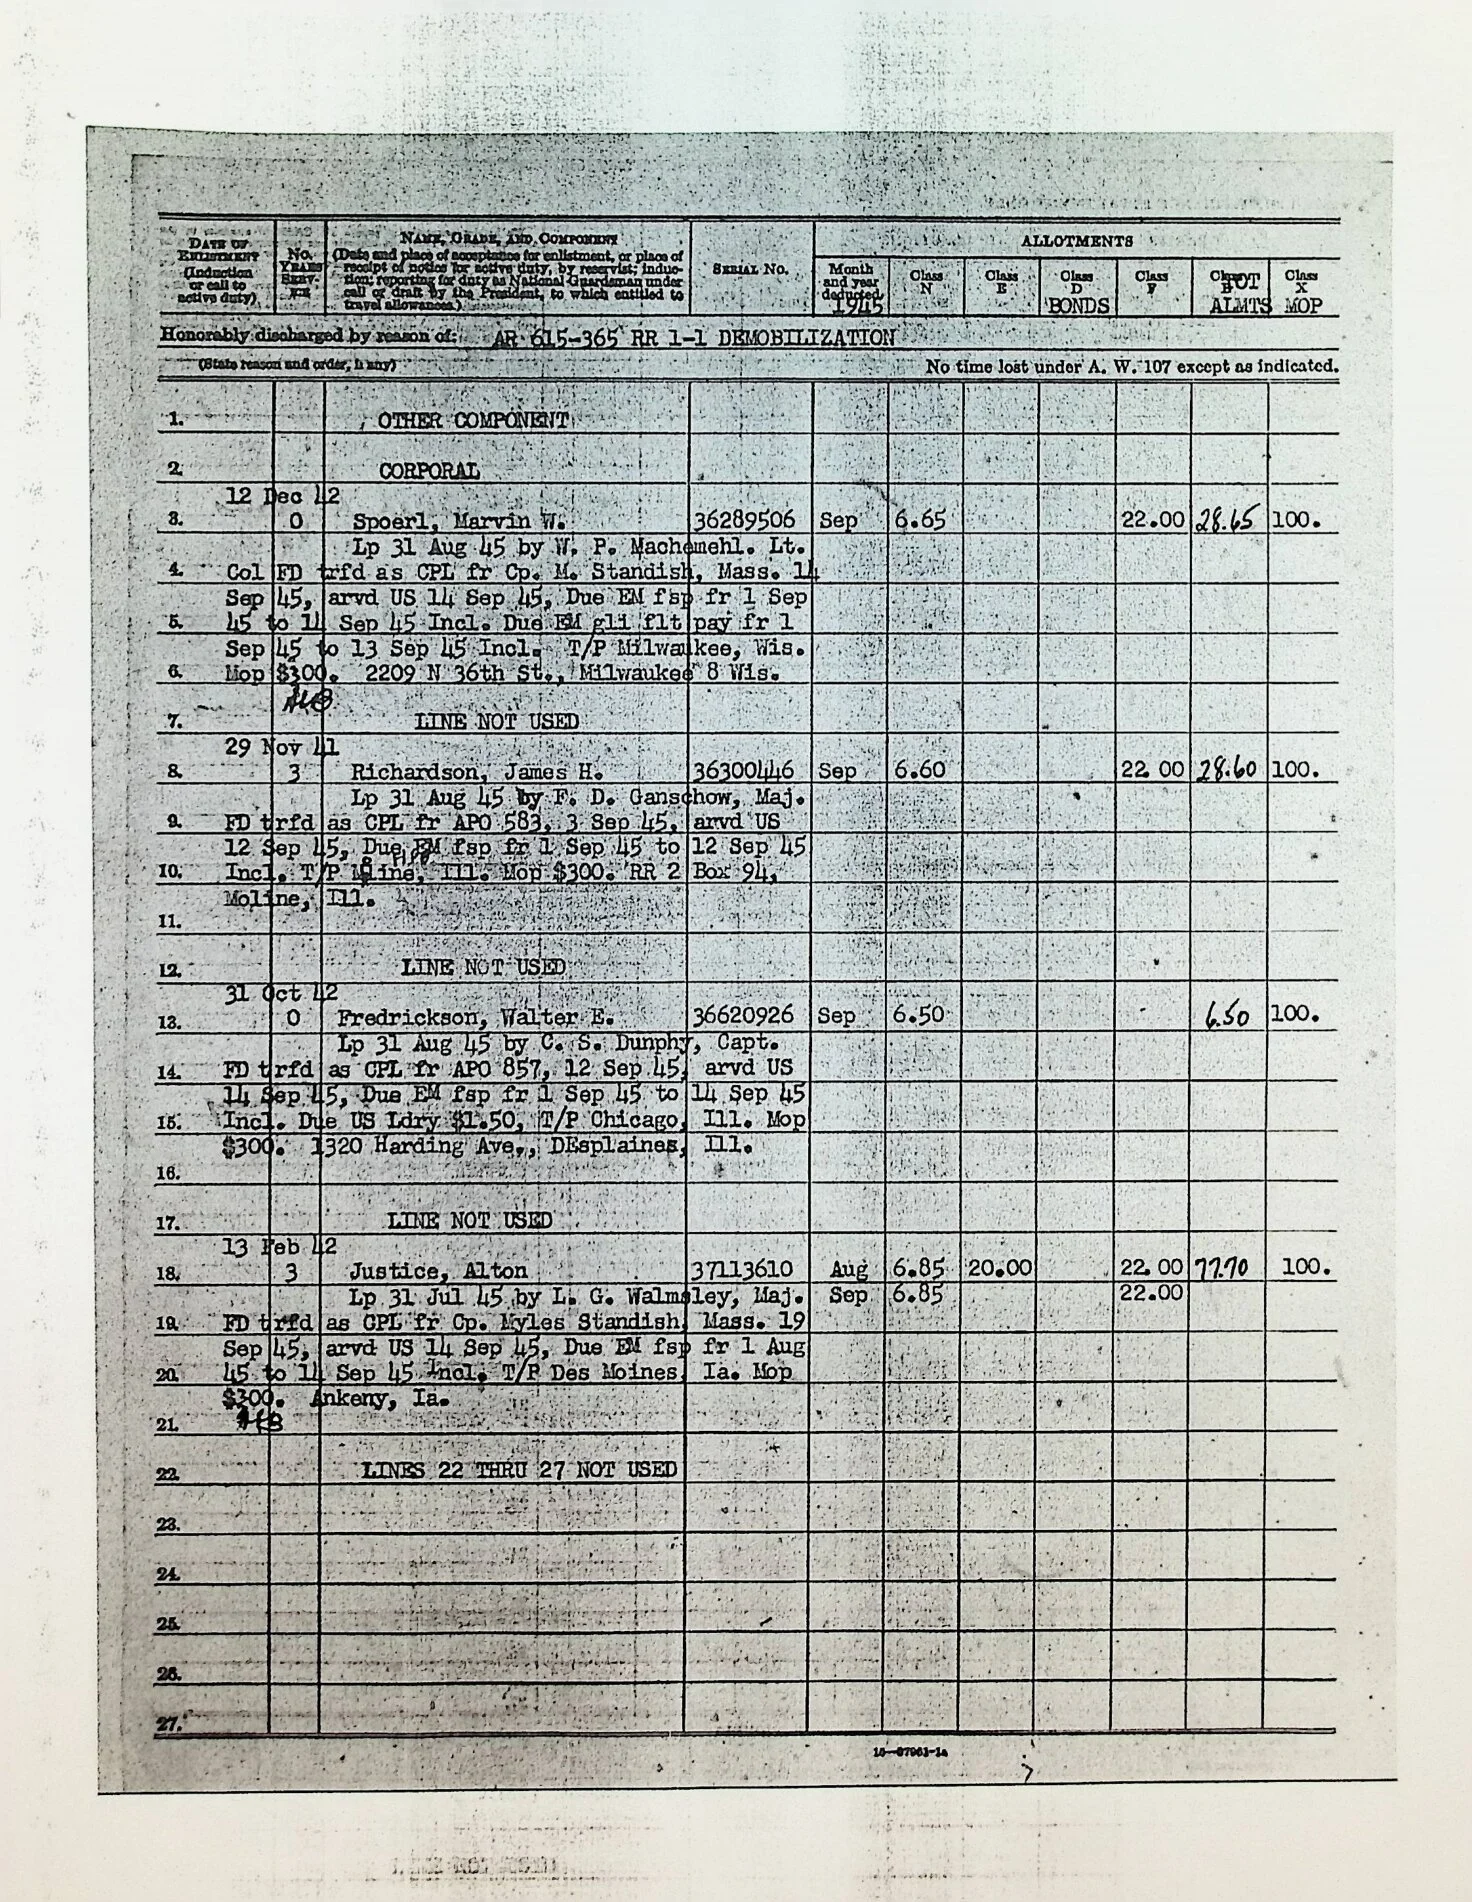 DATE OF ENLISTMENT (Induction or call to active duty)
No. YEARS SERVICE
NAME, GRADE, AND COMPONENT
(Date and place of acceptance for enlistment, or place of receipt of notice for active duty, by reservist; induction; reporting for duty as National Guardsman under call or draft by the President, to which entitled to travel allowances.)
SERIAL No.
ALLOTMENTS
Month and year deducted 1945
Class N
Class E
Class D BONDS
Class F
ALMTS
Class X MOP
Honorably discharged by reason of: AR 615-365 RR 1-1 DEMOBILIZATION
(State reason and order, if any) No time lost under A. W. 107 except as indicated.
1. OTHER COMPONENT
2. CORPORAL
12 Dec 42
3. 0 Spoerl, Marvin W. 36289506 Sep 6.65 22.00 28.65 100.
Lp 31 Aug 45 by W. P. Machemehl. Lt.
4. Col FD trfd as CPL fr Cp. M. Standish, Mass. 14
Sep 45, arvd US 14 Sep 45, Due EM fsp fr 1 Sep
5. 45 to 14 Sep 45 Incl. Due EM gli flt pay fr 1
Sep 45 to 13 Sep 45 Incl. T/P Milwaukee, Wis.
6. Mop $300. 2209 N 36th St., Milwaukee 8 Wis.
7. LINE NOT USED
29 Nov 41
8. 3 Richardson, James H. 36300446 Sep 6.60 22.00 28.60 100.
Lp 31 Aug 45 by F. D. Ganschow, Maj.
9. FD trfd as CPL fr APO 583, 3 Sep 45, arvd US
12 Sep 45, Due EM fsp fr 1 Sep 45 to 12 Sep 45
10. Incl. T/P Moline, Ill. Mop $300. RR 2 Box 94,
Moline, Ill.
11.
12. LINE NOT USED
31 Oct 42
13. 0 Fredrickson, Walter E. 36620926 Sep 6.50 6.50 100.
Lp 31 Aug 45 by C. S. Dunphy, Capt.
14. FD trfd as CPL fr APO 857, 12 Sep 45, arvd US
14 Sep 45, Due EM fsp fr 1 Sep 45 to 14 Sep 45
15. Incl. Due US Ldry $1.50, T/P Chicago, Ill. Mop
$300. 1320 Harding Ave., DEsplaines, Ill.
16.
17. LINE NOT USED
13 Feb 42
18. 3 Justice, Alton 37113610 Aug 6.85 20.00 22.00 77.70 100.
Lp 31 Jul 45 by L. G. Walmsley, Maj. Sep 6.85 22.00
19. FD trfd as CPL fr Cp. Myles Standish, Mass. 19
Sep 45, arvd US 14 Sep 45, Due EM fsp fr 1 Aug
20. 45 to 14 Sep 45 Incl. T/P Des Moines, Ia. Mop
$300. Ankeny, Ia.
21.
22. LINES 22 THRU 27 NOT USED
23.
24.
25.
26.
27.